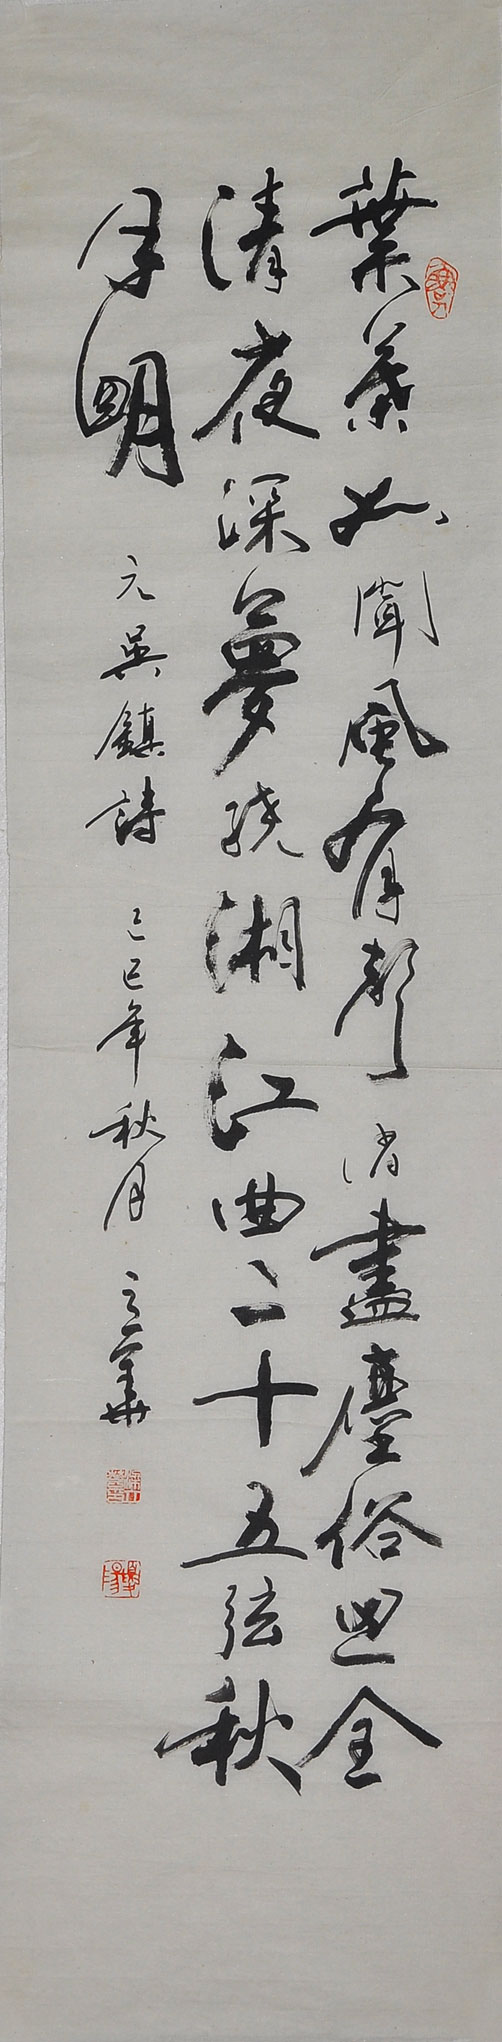 葉葉如聞風有聲消盡塵俗思全
清夜深夢繞湘江曲二十五弦秋
月明
元吳鎮詩 己巳年秋月